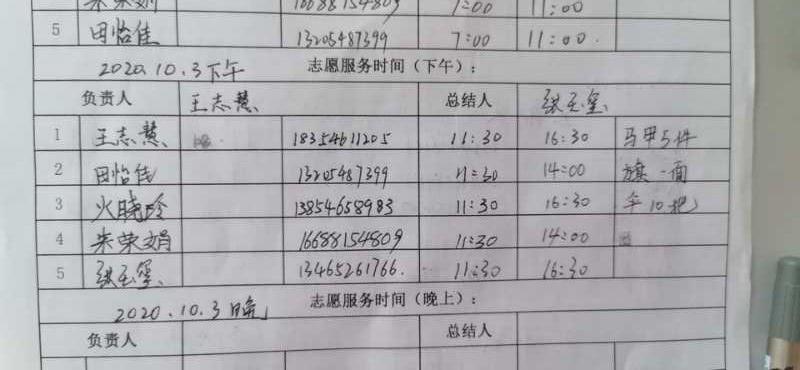 朱荣娟 16688154809 7:00 11:00
5 田怡佳 13205487399 7:00 11:00.
2020.10.3下午 志愿服务时间（下午）：
负责人 王志慧 总结人 张玉玺
1 王志慧 18354611205 11:30 16:30 马甲5件
2 田怡佳 13205487399 11:30 14:00 旗一面
3 火晓玲 13854658983 11:30 16:30 伞10把
4 朱荣娟 16688154809 11:30 14:00
5 张玉玺 13465261766. 11:30 16:30
2020.10.3晚 志愿服务时间（晚上）：
负责人 总结人